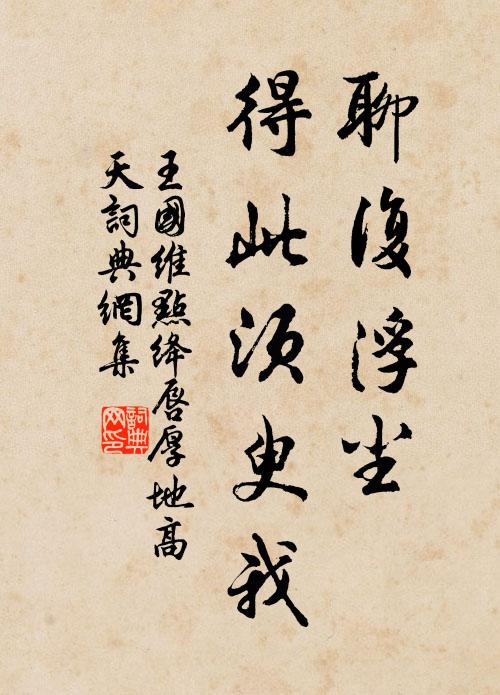 聊復浮生
得此須臾我
王國維點絳唇厚地高
天詞典網集
詞典
网印